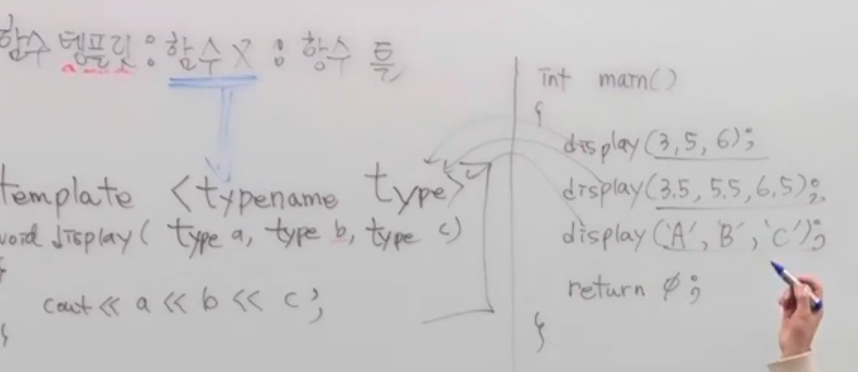 함수 템플릿 : 함수 X : 함수 틀
template <typename type>
void display( type a, type b, type c)
{
cout << a << b << c ;
}
int main()
{
display(3, 5, 6);
display(3.5, 5.5, 6.5);
display('A', 'B', 'C');
return 0;
}